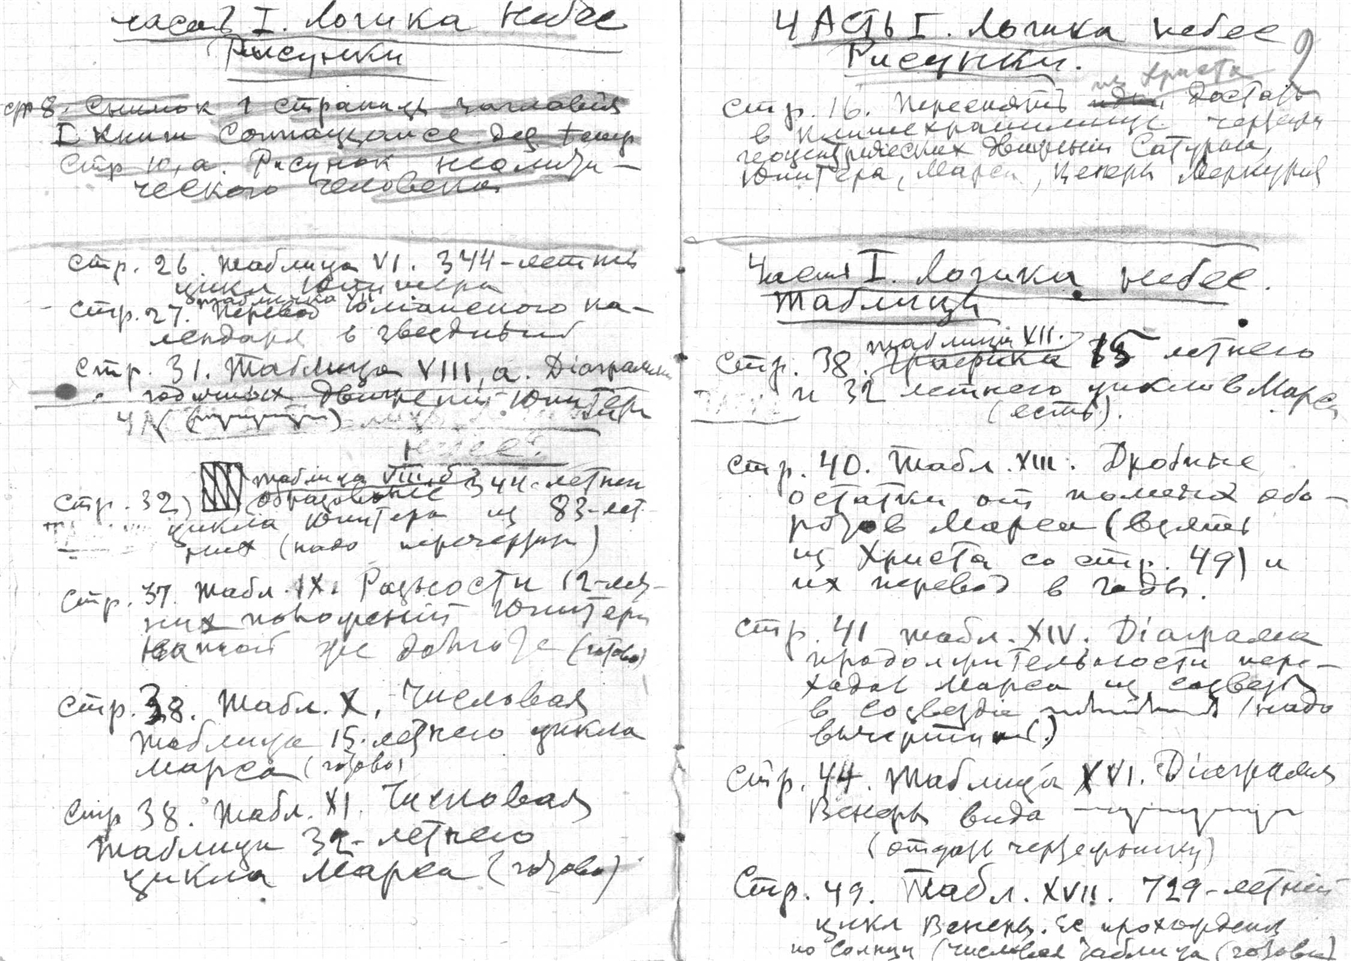 Часть I. Логика небес
Рисунки
стр 8. Снимок 1 страницы заглавия
I книги
стр 10, а. Рисунок неолити-
ческого человека
стр. 26. Таблица VI. 344-летний
цикл Юпитера
таблица VII
стр. 27. Перевод Юлианского ка-
лендаря в звездный
стр. 31. Таблица VIII, а. Діаграмма
годичных движений Юпитера
стр. 32)
таблица VIII, б
Образование 344-летнего
цикла Юпитера из 83-лет
них (надо перечертить)
стр. 37. Табл. IX. Разности 12-лет-
них повторений Юпитера
на той же долготе (готово)
стр. 38. Табл. X. Числовая
таблица 15-летнего цикла
Марса (готово)
стр 38. Табл. XI. Числовая
таблица 32-летнего
цикла Марса (готово)
ЧАСТЬ I. Логика небес
2
Рисунки.
из Христа
стр. 16. Переснять достать
в клишехранилище чертежи
геоцентрических движений Сатурна,
Юпитера, Марса, Венеры Меркурия
Часть I. Логика небес.
Таблицы
таблица XII.
стр. 38. Графика 15 летнего
и 32 летнего циклов Марса
(есть).
стр. 40. Табл. XIII. Дробные
остатки от полных обо-
ротов Марса (взять
из Христа со стр. 49) и
их перевод в годы.
стр. 41 табл. XIV. Діаграмма
продолжительности пере-
ходов Марса из созвезд
в созвездие (надо
вычертить)
стр. 44. Таблица XVI. Діаграмма
Венеры вида
(отдан чертежнику)
Стр. 49. Табл. XVII. 729-летний
цикл Венеры. Ее прохождения
по солнцу (числовая таблица (готова)